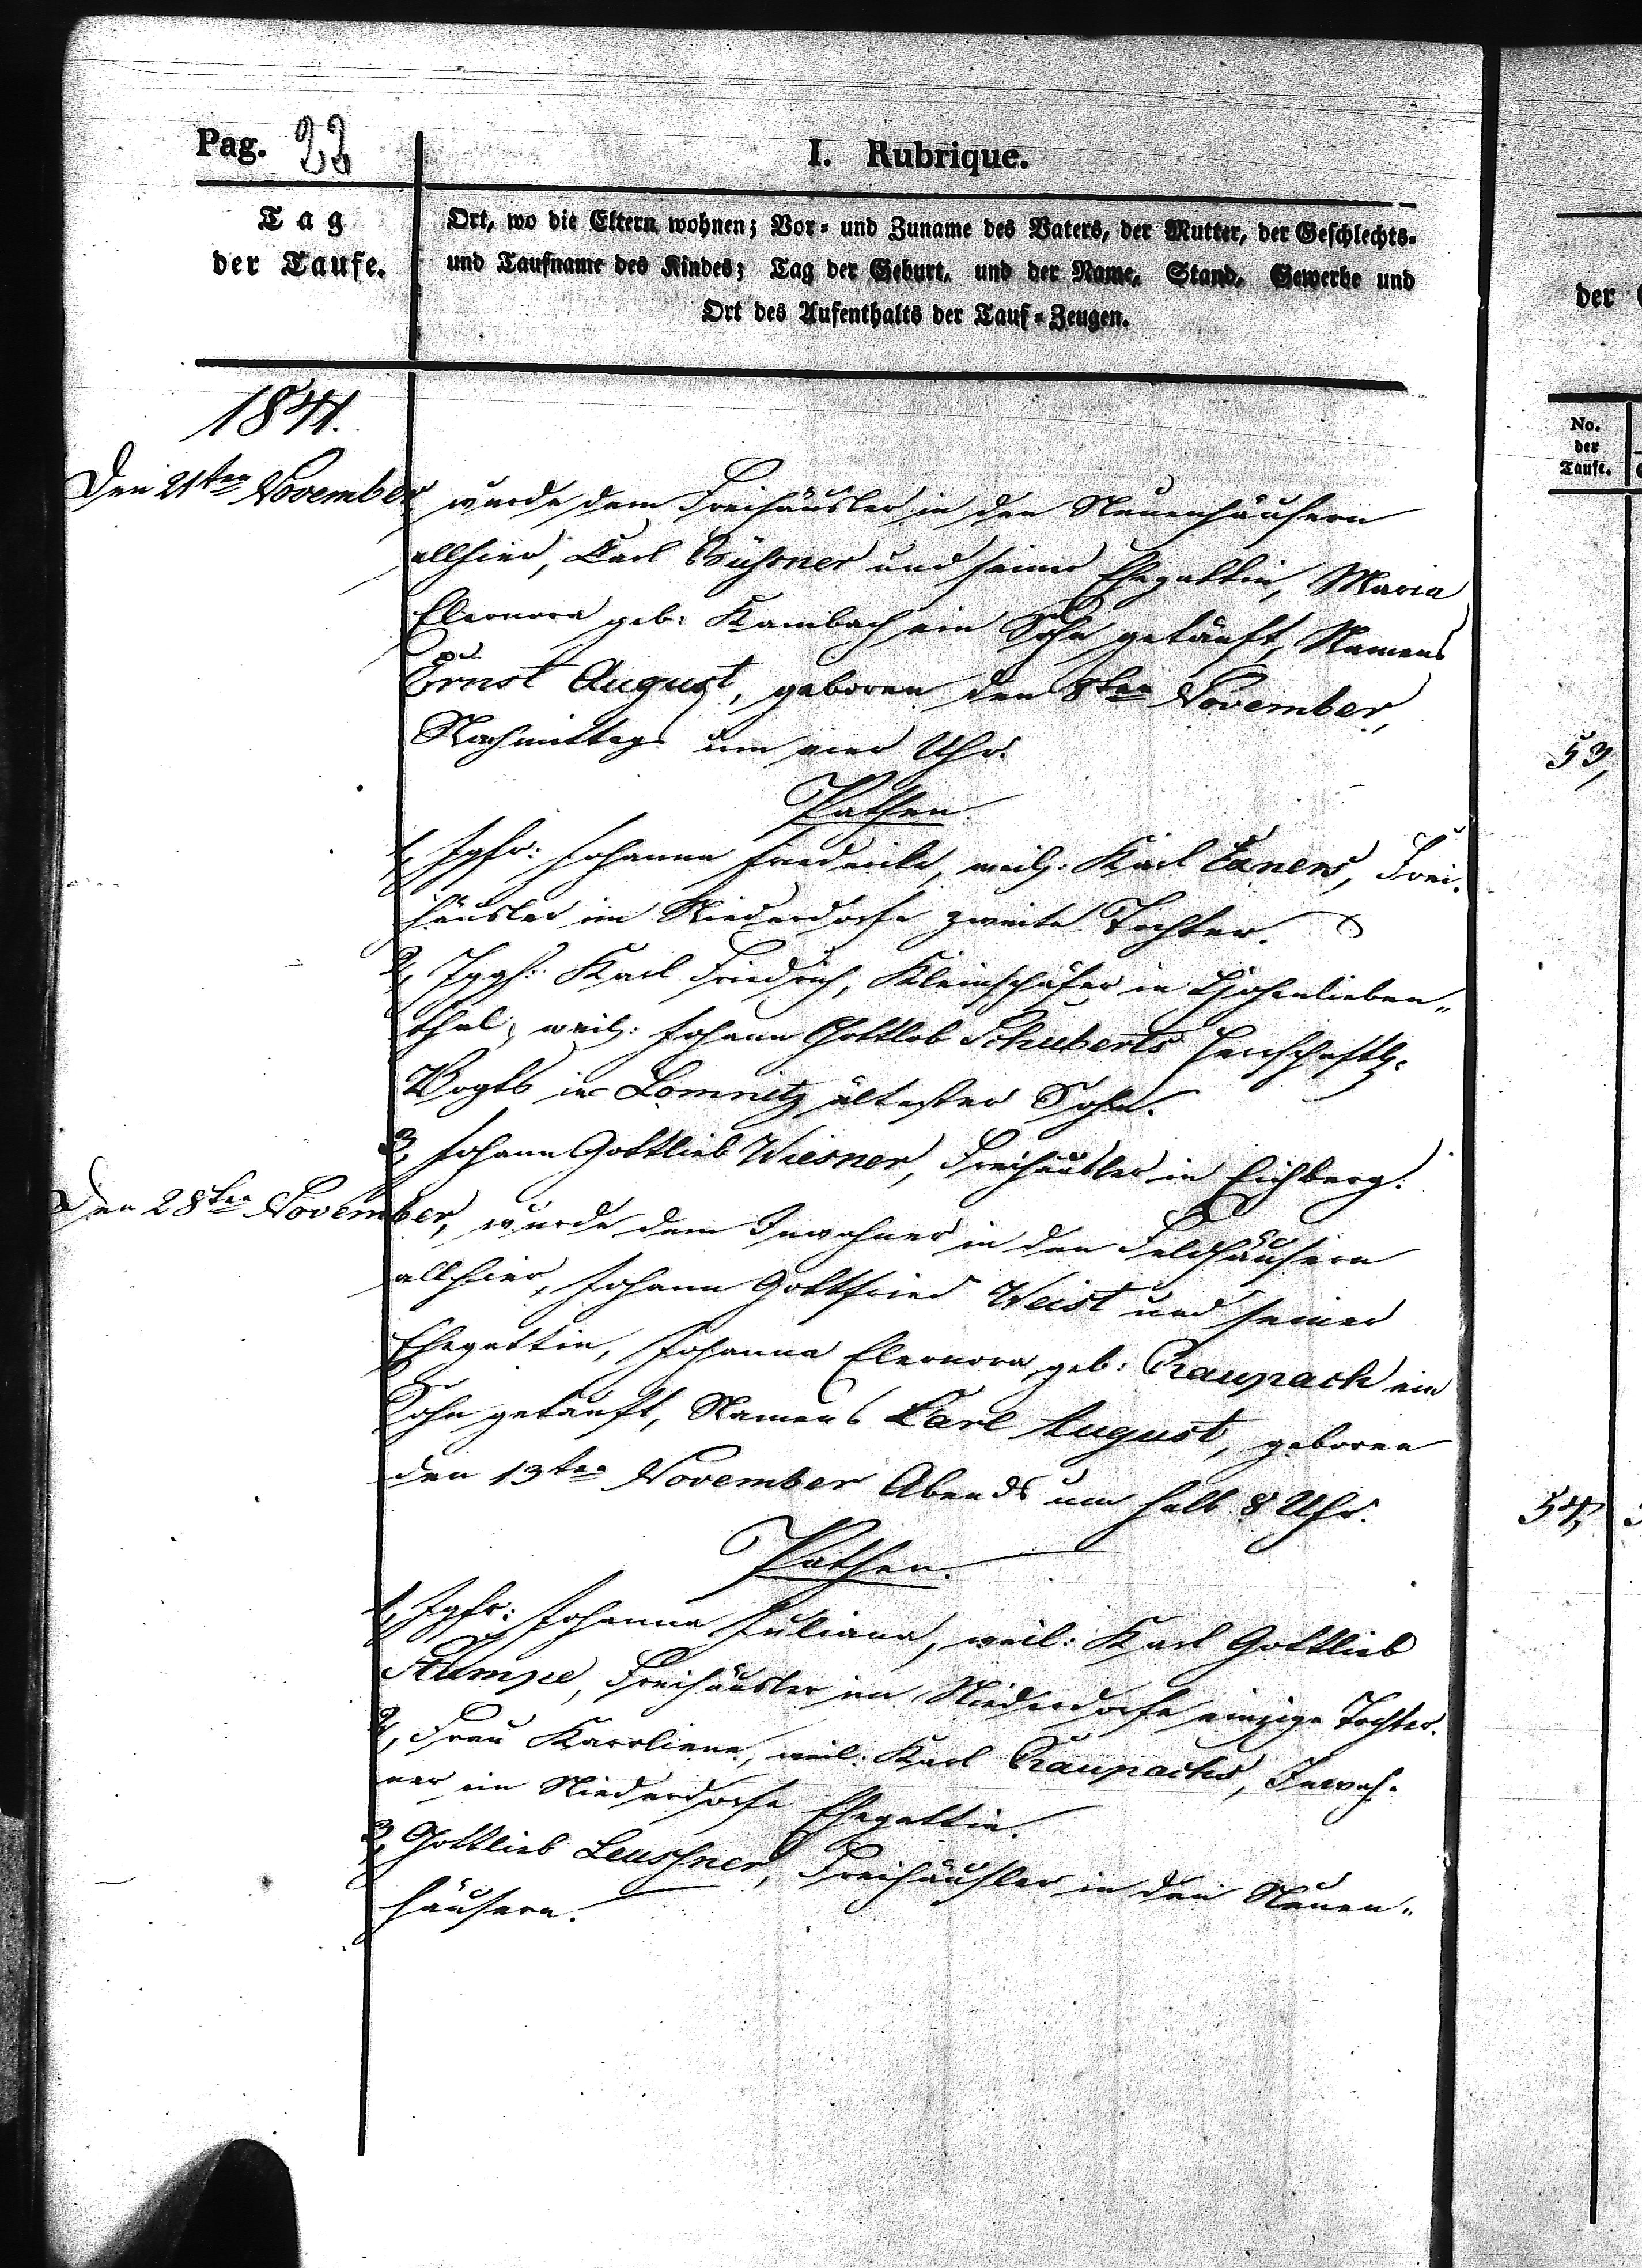 Pag. 22
I. Rubrique.
Tag
der Taufe.
Ort, wo die Eltern wohnen; Vor- und Zuname des Vaters, der Mutter, der Geschlechts-
und Taufname des Kindes; Tag der Geburt, und der Name, Stand, Gewerbe und
Ort des Aufenthalts der Tauf-Zeugen.
1841.
Den 21ten November wurde dem Freihäusler in den Neuenhäusern
allhier, Carl Bührner und seiner Ehegattin, Maria
Eleonora geb: Kambach ein Sohn getauft, Namens
Ernst August, geboren den 8ten November,
Nachmittags um vier Uhr.
Pathen.
1, Jgfr: Johanna Friedericke, weil: Karl Exners, Frei-
häusler im Niederdorfe zweite Tochter.
2, Jggs: Karl Friedrich, Kleinschäfer in Hohenlieben-
thal, weil: Johann Gottlob Schuberts herrschaftl.
Vogts in Lomnitz ältester Sohn.
3, Johann Gottlieb Wiesner, Freihäusler in Eichberg.
Den 28ten November, wurde dem Inwohner in den Feldhäusern
allhier, Johann Gottfried Weist und seiner
Ehegattin, Johanna Eleonora, geb: Raupach ein
Sohn getauft, Namens Carl August, geboren
den 13ten November Abends um halb 8 Uhr.
Pathen.
1, Jgfr: Johanna Juliana, weil: Karl Gottlieb
Stumpe, Freihäusler im Niederdorfe einzige Tochter.
2, Frau Karoliena, weil: Karl Raupachs, Inwoh-
ner im Niederdorfe Ehegattin.
3, Gottlieb Leuschner, Freihäusler in den Neuen-
häusern.
der
No.
der
Taufe.
53,
54,